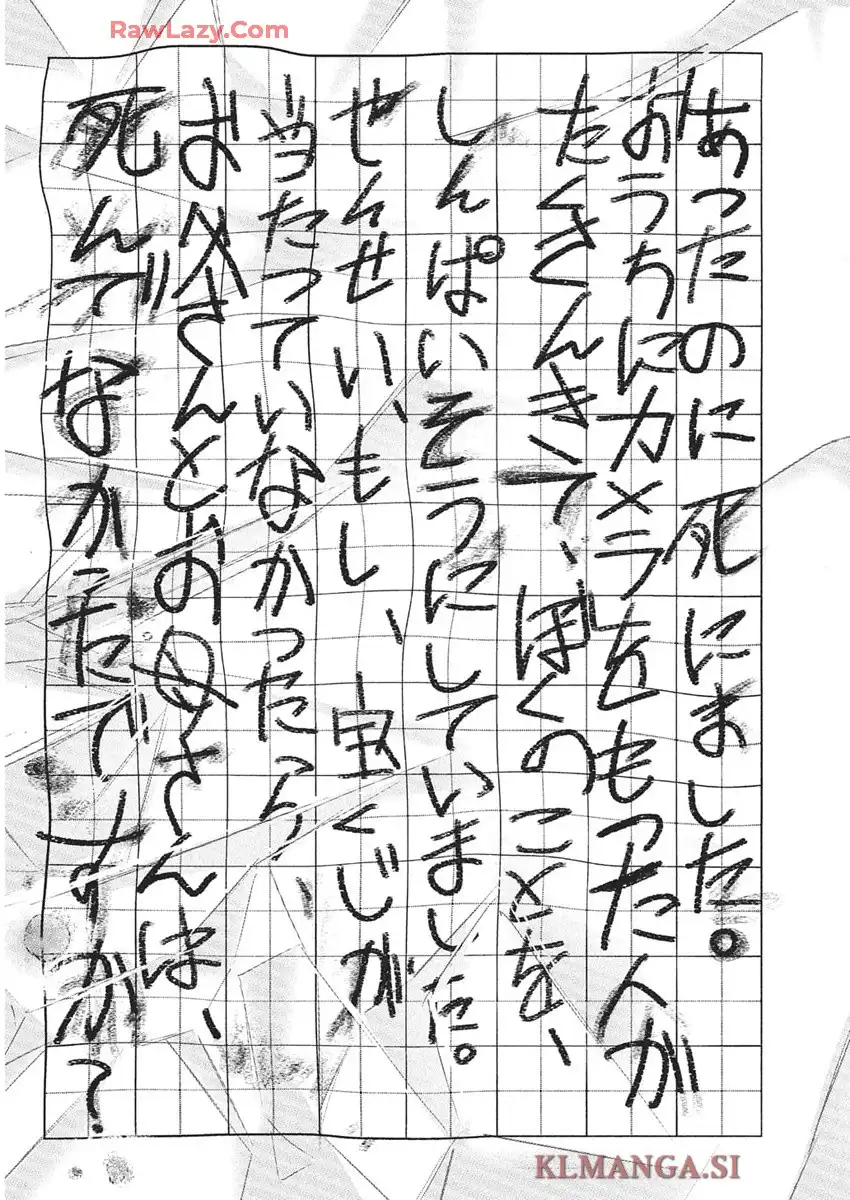 RawLazy.Com
あったのに死にました。
おうちにカメラをもった人が
たくさんきて、ぼくのことを、
しんぱいそうにしていました。
せんせい、もし、宝くじが
当たっていなかったら、
お父さんとお母さんは、
死んでなかったですか?
KLMANGA.SI